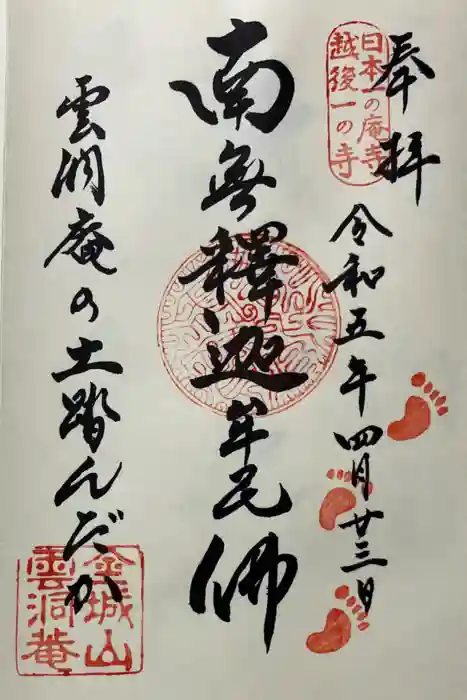 奉拝
日本一の庵寺
越後一の寺
令和五年四月廿三日
南無釋迦牟尼佛
雲洞庵の土踏んだか
金城山
雲洞菴